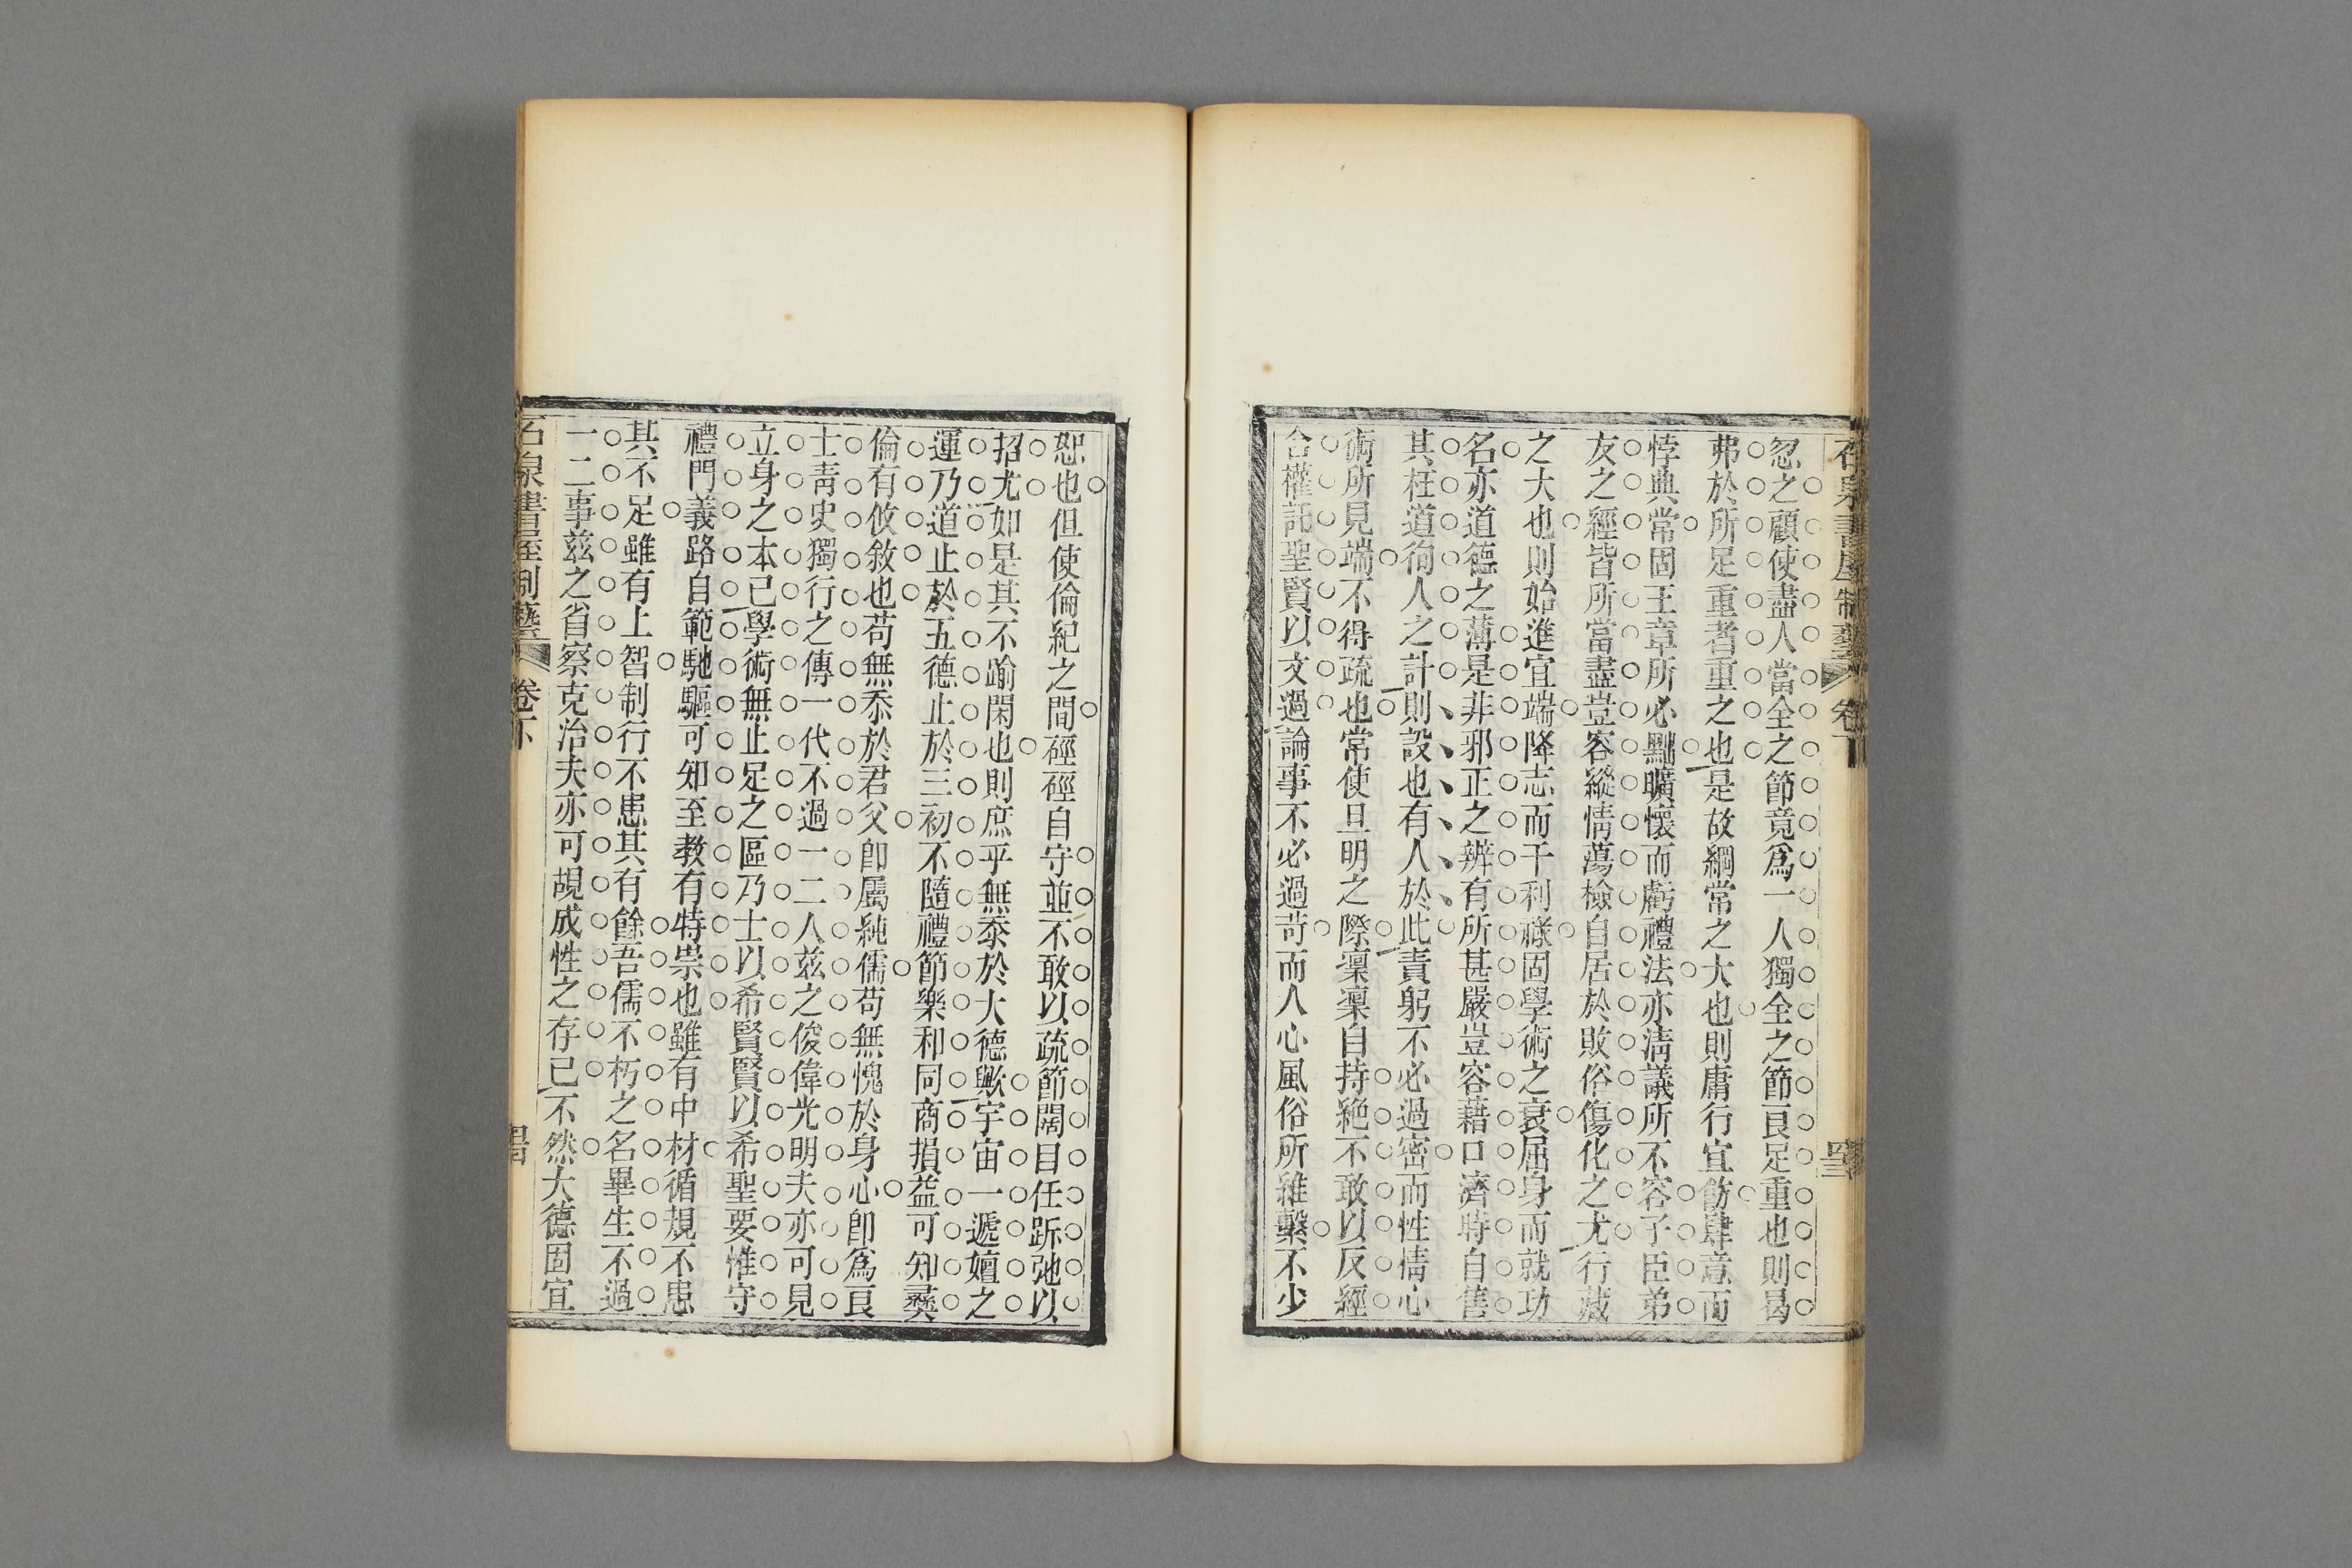 石泉書屋制藝 卷下
忽之顧使盡人當全之節竟爲一人獨全之節良足重也則曷
弗於所足重者重之也是故綱常之大也則庸行宜飭肆意而
悖典常固王章所必黜曠懷而虧禮法亦清議所不容子臣弟
友之經皆所當盡豈容縱情蕩檢自居於敗俗傷化之尤行藏
之大也則始進宜端降志而干利祿固學術之衰屈身而就功
名亦道德之薄是非邪正之辨有所甚嚴豈容藉口濟時自售
其枉道徇人之計則設也有人於此責躬不必過密而性情心
術所見端不得疏也常使旦明之際凜凜自持絕不敢以反經
合權託聖賢以文過論事不必過苛而人心風俗所維繫不少
恕也但使倫紀之間硜硜自守並不敢以疏節闊目任跅弛以
招尤如是其不踰閑也則庶乎無忝於大德歟宇宙一遞嬗之
運乃道止於五德止於三初不隨禮節樂和同商損益可知彝
倫有攸敘也苟無忝於君父卽屬純儒苟無愧於身心卽爲良
士靑史獨行之傳一代不過一二人茲之俊偉光明夫亦可見
立身之本已學術無止足之區乃士以希賢賢以希聖要惟守
禮門義路自範馳驅可知至教有特崇也雖有中材循規不患
其不足雖有上智制行不患其有餘吾儒不朽之名畢生不過
一二事茲之省察克治夫亦可覘成性之存已不然大德固宜
石泉書屋制藝 卷下